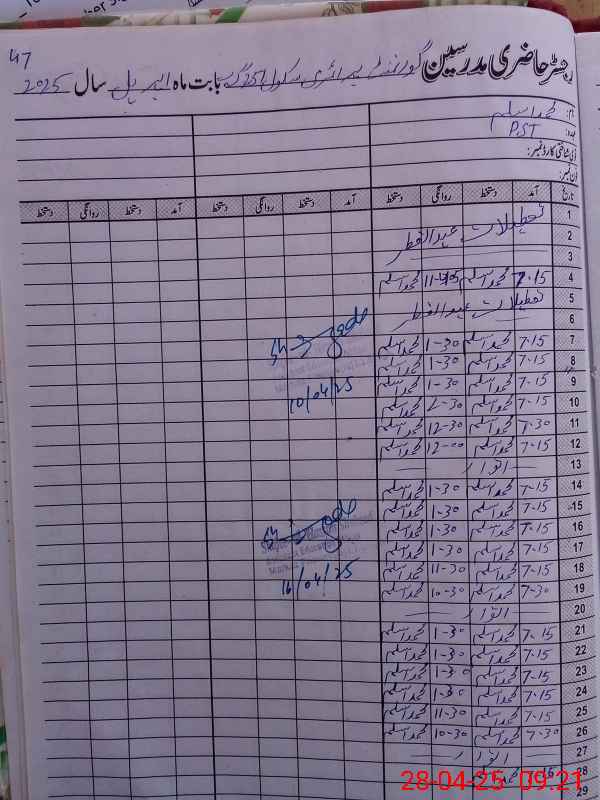 47
رجسٹر حاضری مدرسین گورنمنٹ پرائمری سکول بابت ماہ اپریل سال 2025
نام: محمد اسلم
عہدہ: PST
قومی شناختی کارڈ نمبر:
فون نمبر:
تاریخ آمد دستخط روانگی دستخط آمد دستخط روانگی دستخط آمد دستخط روانگی دستخط
1 تعطیلات عید الفطر
2
3
4 7-15 محمد اسلم محمد اسلم
5 تعطیلات عید الفطر
6
7 7-15 محمد اسلم 1-30 محمد اسلم
8 7-15 محمد اسلم 1-30 محمد اسلم
9 7-15 محمد اسلم 1-30 محمد اسلم
10 7-15 محمد اسلم 2-30 محمد اسلم
10/04/25
11 7-30 محمد اسلم 12-30 محمد اسلم
12 7-15 محمد اسلم 12-00 محمد اسلم
13 اتوار
14 7-15 محمد اسلم 1-30 محمد اسلم
15 7-15 محمد اسلم 1-30 محمد اسلم
16 7-15 محمد اسلم 1-30 محمد اسلم
17 7-15 محمد اسلم 1-30 محمد اسلم
18 7-15 محمد اسلم 11-30 محمد اسلم
16/04/25
19 7-30 محمد اسلم 10-30 محمد اسلم
20 اتوار
21 7-15 محمد اسلم 1-30 محمد اسلم
22 7-15 محمد اسلم 1-30 محمد اسلم
23 7-15 محمد اسلم 1-30 محمد اسلم
24 7-15 محمد اسلم 1-30 محمد اسلم
25 7-15 محمد اسلم 11-30 محمد اسلم
26 7-30 محمد اسلم 10-30 محمد اسلم
27 اتوار
28 محمد اسلم
29
28-04-25 09:21